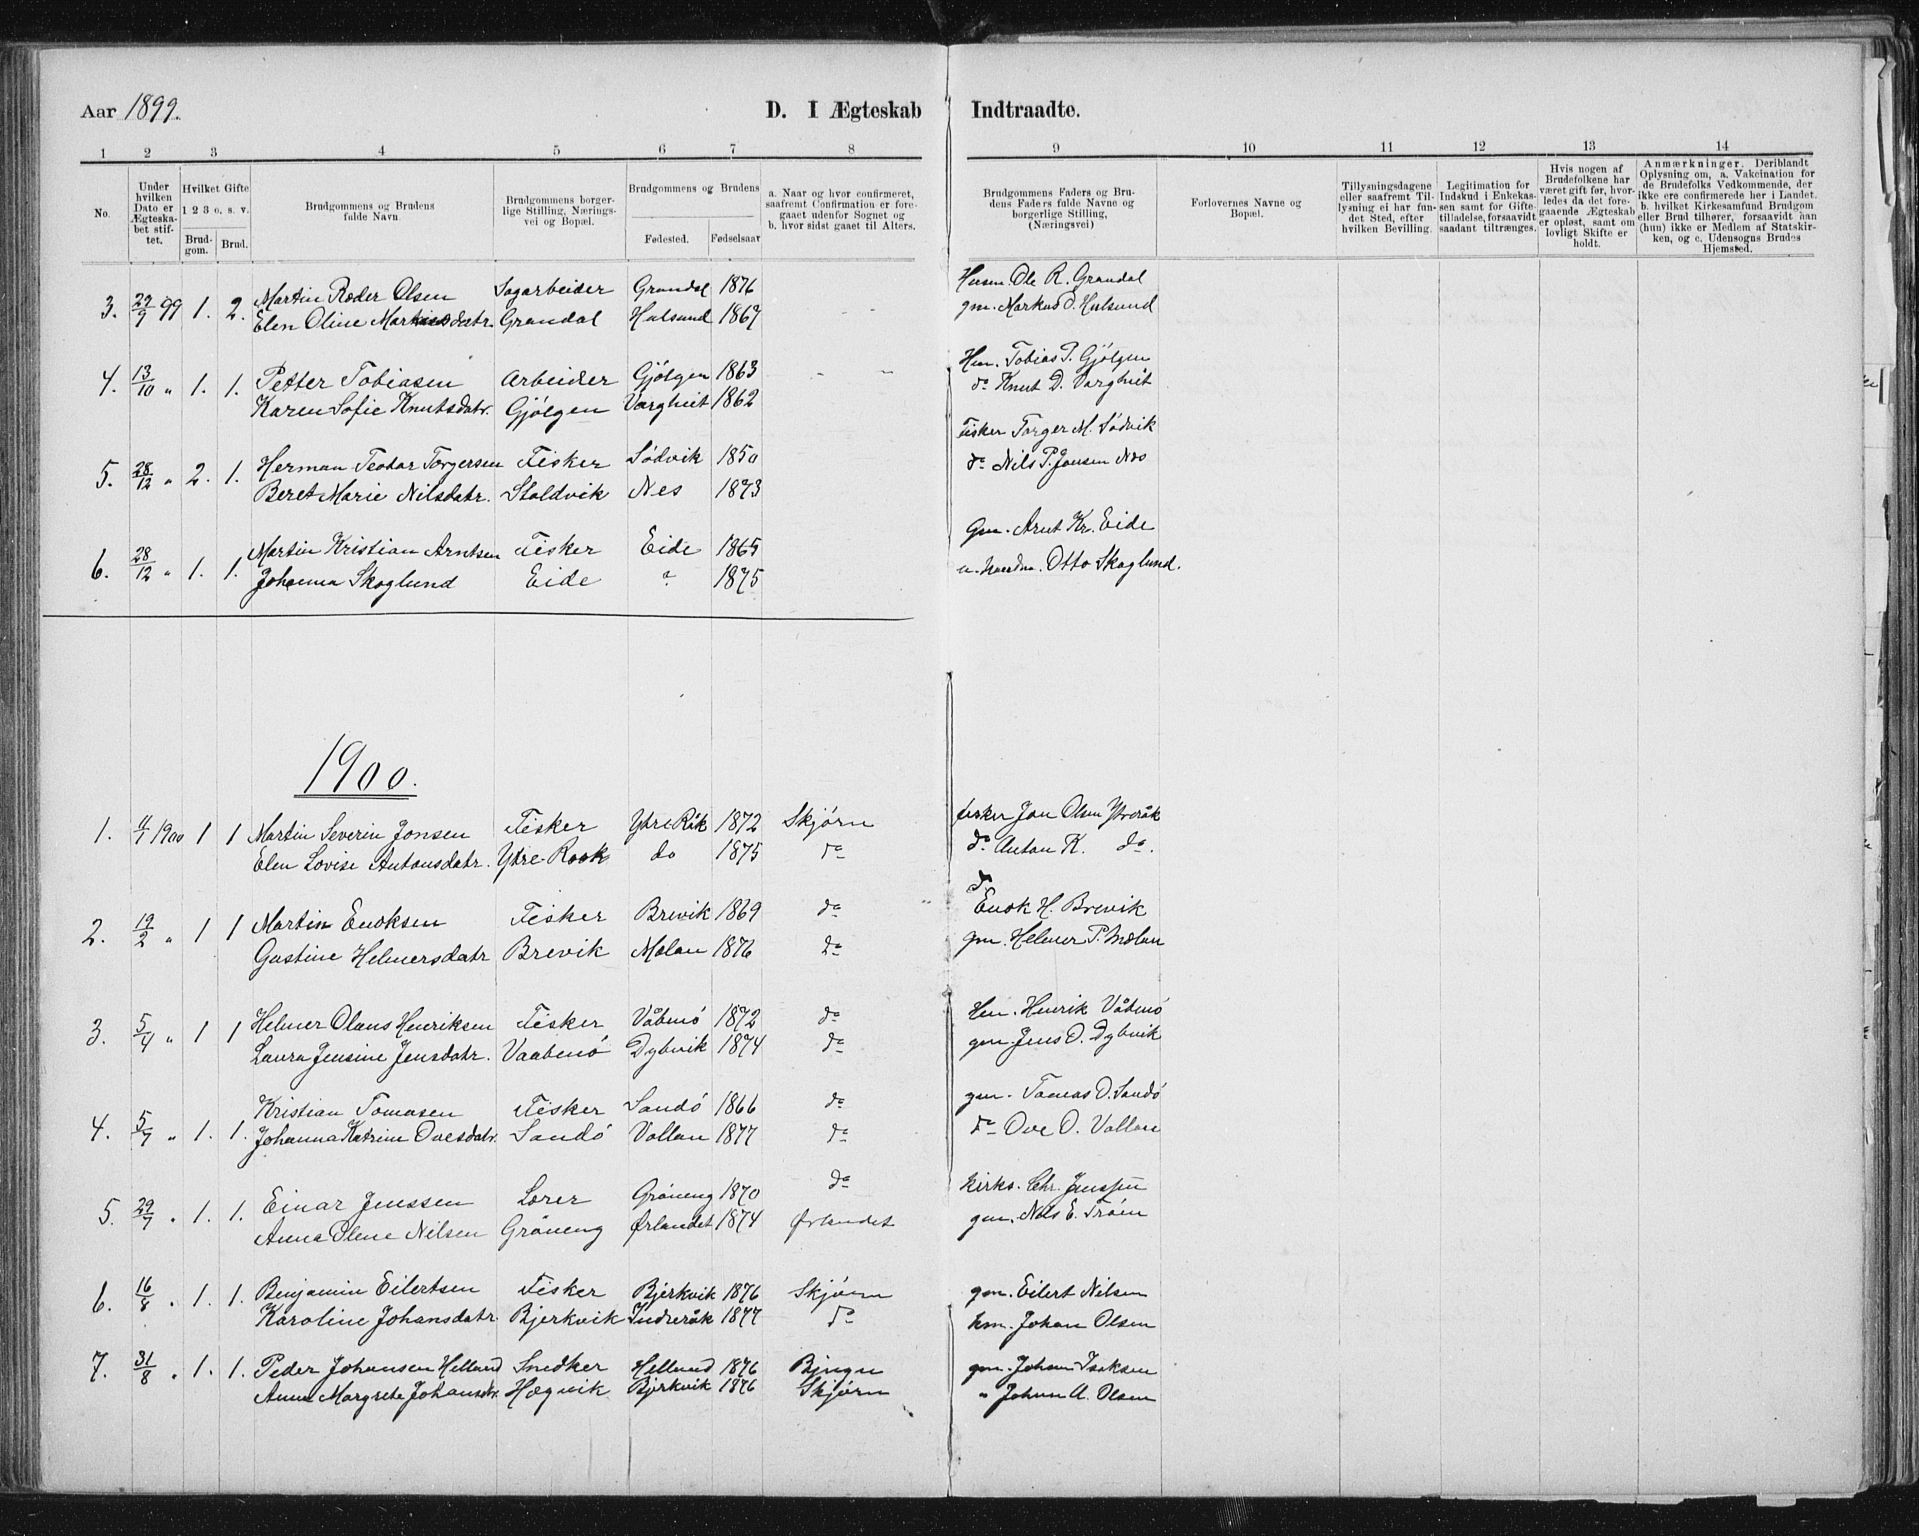 Aar 1899.
D. I Ægteskab Indtraadte.
1 2 3 4 5 6 7 8 9 10 11 12 13 14
No.
Under hvilken Dato er Ægteskabet stiftet.
Hvilket Gifte
1 2 3 o. s. v.
Brudgom. Brud.
Brudgommens og Brudens fulde Navn.
Brudgommens borgerlige Stilling, Næringsvei og Bopæl.
Brudgommens og Brudens
Fødested. Fødselsaar
a. Naar og hvor confirmeret, saafremt Confirmation er foregaaet udenfor Sognet og b. hvor sidst gaaet til Alters.
Brudgommens Faders og Brudens Faders fulde Navne og borgerlige Stilling, (Næringsvei)
Forlovernes Navne og Bopæl.
Tillysningsdagene eller saafremt Tillysning ei har fundet Sted, efter hvilken Bevilling.
Legitimation for Indskud i Enkekassen samt for Giftetilladelse, forsaavidt saadant tiltrænges.
Hvis nogen af Brudefolkene har været gift før, hvorledes da det foregaaende Ægteskab er opløst, samt om lovligt Skifte er holdt.
Anmærkninger. Deriblandt Oplysning om, a. Vakcination for de Brudefolks Vedkommende, der ikke ere confirmerede her i Landet. b. hvilket Kirkesamfund Brudgom eller Brud tilhører, forsaavidt han (hun) ikke er Medlem af Statskirken, og c. Udensogns Brudes Hjemsted.
3. 29/9 99 1. 2. Martin Røder Olsen Sagarbeider Grandal 1876 Husm Ole R. Grandal
Elen Oline Markusdatr. Grandal Hulsund 1867 gm. Markus D. Hulsund
4. 13/10 " 1. 1. Petter Tobiasen Arbeider Gjölgen 1863 - - Hm. Tobias P. Gjölgen
Karen Sofie Knutsdatr. Gjölgen Varghiet 1862 do Knut D. Varghiet
5. 28/12 " 2. 1. Herman Teodor Torgersen Fisker Södvik 1850 Fisker Torger M. Södvik
Beret Marie Nilsdatr. Stoldvik Nes 1873 do Nils P. Jonsen Nes
6. 28/12 " 1. 1. Martin Kristian Arntsen Fisker Eide 1865 Gm. Arnt Kr. Eide
Johanna Skoglund Eide " 1875 Otto Skoglund.
1900.
1. 11/1 1900 1 1 Martin Severin Jonsen Fisker Ytre Råk 1872 Skjørn fisker Jon Olsen Ytreråk
Elen Lovise Antonsdatr. Ytre-Raak do 1875 do do Anton K. do.
2. 19/2 " 1 1 Martin Enoksen Fisker Brevik 1869 do F. Enok H. Brevik
Gustine Helmersdatr Brevik Mølan 1876 do gm. Helmer P. Mølan
3. 5/4 " 1 1 Helmer Olaus Henriksen Fisker Våbnö 1872 do Hm. Henrik Våbnö
Laura Jensine Jensdatr. Vaabenö Dybvik 1874 do gm. Jens O. Dybvik
4. 5/7 " 1. 1. Kristian Tomasen Fisker Sandö 1866 do gm. Tomas O. Sandö
Johanna Katrine Ovesdatr. Sandö Vollan 1877 do do Ove O. Vollan
5. 29/7 " 1. 1. Einar Jenssen Lærer Gröneng 1870 do kirks. Chr. Jenssen
Anna Olene Nilsen Gröneng Ørlandet 1874 Ørlandet gm. Nils E. Tröen
6. 16/8 " 1. 1. Benjamin Eilertsen Fisker Bjerkvik 1876 Skjørn gm. Eilert Nilsen
Karoline Johansdatr. Bjerkvik Indreråk 1877 do hm. Johan Olsen
7. 31/8 " 1. 1. Peder Johansen Helland Snedker Helland 1876 Bjugn gm. Johan Isaksen
Anna Margrete Johansdtr. Hægvik Bjerkvik 1876 Skjørn " Johan A. Olsen